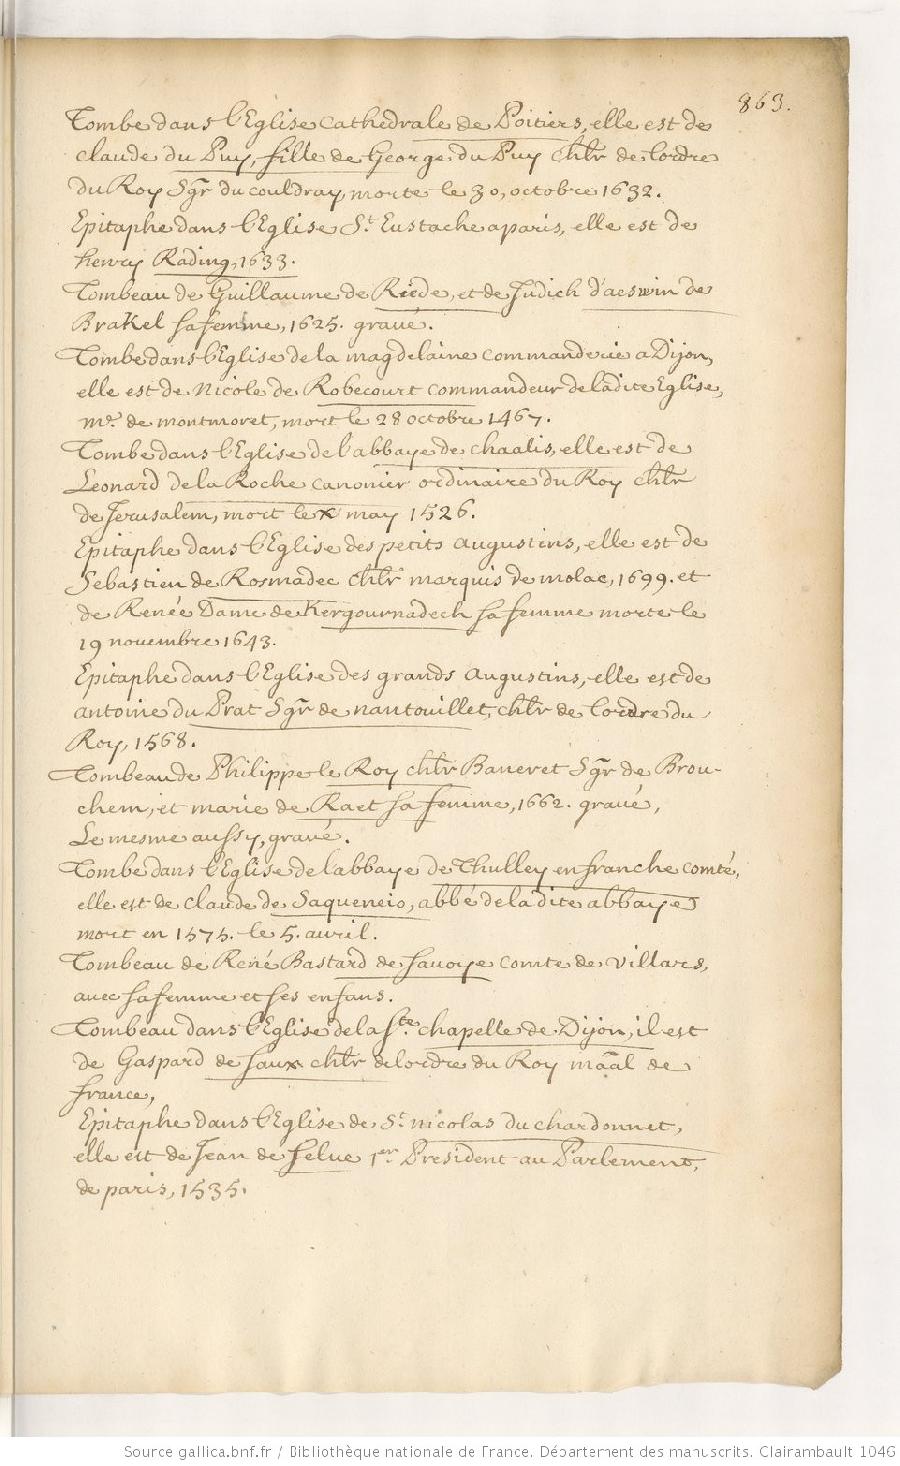 863.
Tombe dans l'Eglise cathedrale de Poitiers, elle est de
claude du Puy, fille de George du Puy chlr de l'ordre
du Roy Sgr du couldray, morte le 30, octobre 1632.
Epitaphe dans l'Eglise St. Eustache a paris, elle est de
henry Rading, 1633.
Tombeau de Guillaume de Rede, et de Judich d'aeswin de
Brakel sa femme, 1625. gravé.
Tombe dans l'Eglise de la magdelaine commanderie a Dijon,
elle est de Nicole de Robecourt commandeur de ladite Eglise,
me. de montmoret, mort le 28 octobre 1467.
Tombe dans l'Eglise de l'abbaye de chaalis, elle est de
Leonard de la Roche canonier ordinaire du Roy chlr
de Jerusalem, mort le x may 1526.
Epitaphe dans l'Eglise des petits augustins, elle est de
Sebastien de Rosmadec chlr marquis de molac, 1699. et
de Renée Dame de Kergournadech sa femme morte le
19 novembre 1643.
Epitaphe dans l'Eglise des grands augustins, elle est de
antoine du Prat Sgr de nantouillet, chlr de l'ordre du
Roy, 1568.
Tombeau de Philippe le Roy chlr Baneret Sgr de Brou-
chem, et marie de Raet sa femme, 1662. gravé,
Le mesme aussy, gravé.
Tombe dans l'Eglise de l'abbaye de Thulley en franche comté,
elle est de claude de Saqueneio, abbé de ladite abbaye
mort en 1575. le 5. avril.
Tombeau de René Bastard de savoye comte de villars,
avec sa femme et ses enfans.
Tombeau dans l'Eglise de la Ste. chapelle de Dijon, il est
de Gaspard de saux chlr de l'ordre du Roy maal de
france,
Epitaphe dans l'Eglise de St. nicolas du chardonnet,
elle est de Jean de selve 1er President au Parlement,
de paris, 1535.
Source gallica.bnf.fr / Bibliothèque nationale de France. Département des manuscrits. Clairambault 1046